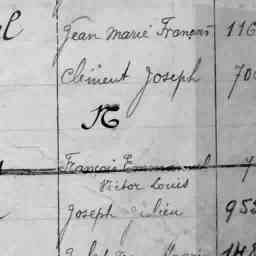 Jean Marie François 116
Clément Joseph 70
N
François Emmanuel
Victor Louis
Joseph Julien 95